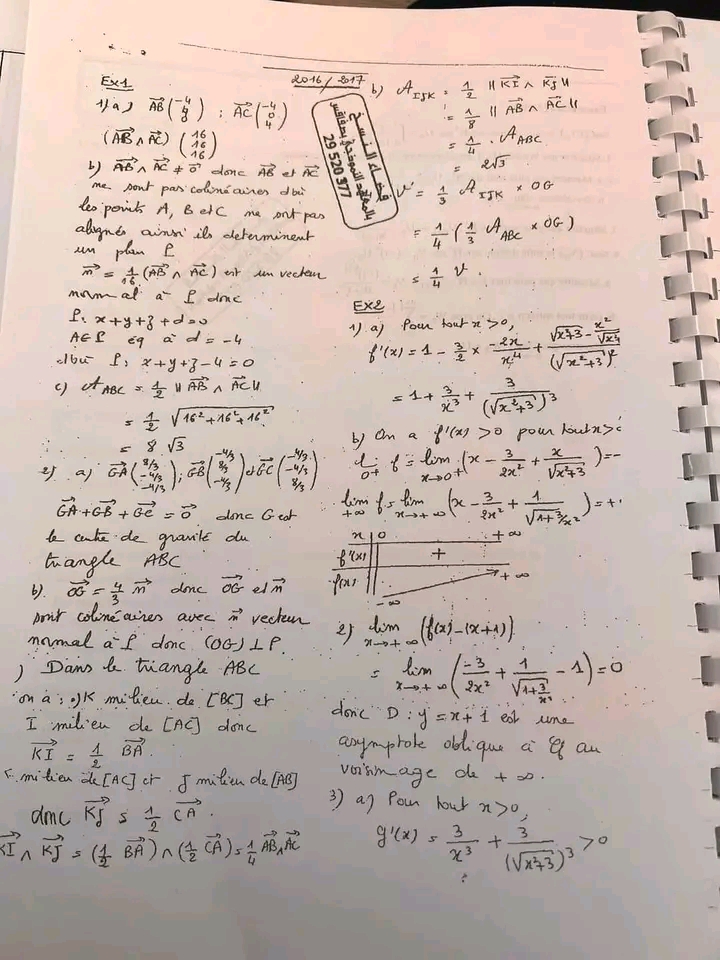 2016/2017
Ex1
1) a) AB→ (-4 4 0) ; AC→ (-4 0 4)
(AB→ ∧ AC→) (16 16 16)
b) AB→ ∧ AC→ ≠ 0→ donc AB→ et AC→
ne sont pas colinéaires d'où
les points A, B et C ne sont pas
alignés ainsi ils determinent
un plan P
n→ = 1/16 (AB→ ∧ AC→) est un vecteur
normal à P donc
P: x+y+z+d=0
A∈P éq à d = -4
d'où P: x+y+z-4=0
c) A_ABC = 1/2 ||AB→ ∧ AC→||
= 1/2 √(16²+16²+16²)
= 8 √3
2) a) GA→ (8/3 -4/3 -4/3) ; GB→ (-4/3 8/3 -4/3) et GC→ (-4/3 -4/3 8/3)
GA→ + GB→ + GC→ = 0→ donc G est
le centre de gravité du
triangle ABC
b) OG→ = 4/3 n→ donc OG→ et n→
sont colinéaires avec n→ vecteur
normal à P donc (OG) ⊥ P.
) Dans le triangle ABC
on a : K milieu de [BC] et
I milieu de [AC] donc
KI→ = 1/2 BA→
milieu de [AC] et J milieu de [AB]
donc KJ→ = 1/2 CA→.
KI→ ∧ KJ→ = (1/2 BA→) ∧ (1/2 CA→) = 1/4 AB→ ∧ AC→
b) A_IJK = 1/2 ||KI→ ∧ KJ→||
= 1/8 ||AB→ ∧ AC→||
= 1/4 . A_ABC
= 2√3
V' = 1/3 A_IJK × OG
= 1/4 (1/3 A_ABC × OG)
= 1/4 V.
فضاء النسخ
بالمعهد النموذجي بصفاقس
29 520 377
Ex2
1) a) Pour tout x > 0,
f'(x) = 1 - 3/2 × -2x/x⁴ + (√(x²+3) - x²/√(x²+3))/(√(x²+3))²
= 1 + 3/x³ + 3/(√(x²+3))³
b) On a f'(x) > 0 pour tout x >
lim 0+ f = lim x→0+ (x - 3/2x² + x/√(x²+3)) = -
lim +∞ f = lim x→+∞ (x - 3/2x² + 1/√(1+3/x²)) = +
x 0 +∞
f'(x) +
f(x) -∞ +∞
2) lim x→+∞ (f(x) - (x+1))
= lim x→+∞ (-3/2x² + 1/√(1+3/x²) - 1) = 0
donc D : y = x+1 est une
asymptote oblique à Cf au
voisinage de +∞.
3) a) Pour tout x > 0,
g'(x) = 3/x³ + 3/(√(x²+3))³ > 0